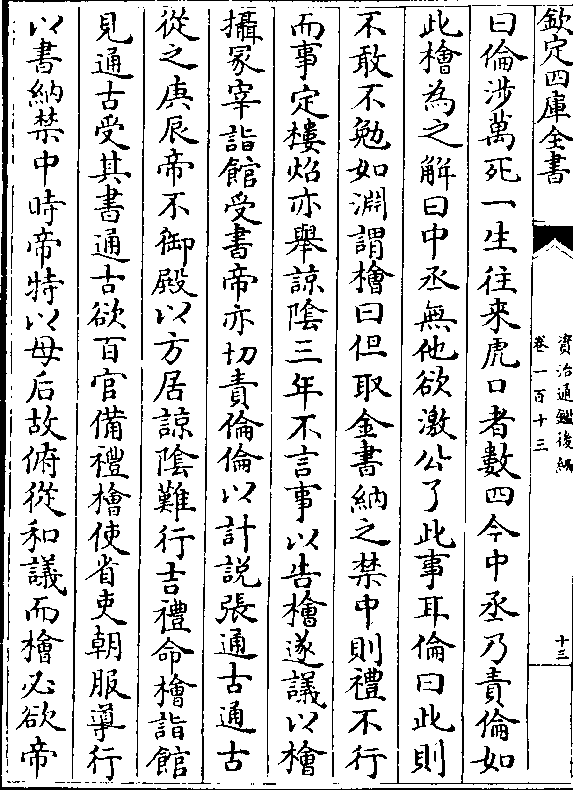 欽定四庫全書
資治通鑑後編
卷一百十三
十三
曰倫涉萬死一生往来虎口者數四今中丞乃責倫如
此檜為之解曰中丞無他欲激公了此事耳倫曰此則
不敢不勉如淵謂檜曰但取金書納之禁中則禮不行
而事定樓炤亦舉諒陰三年不言事以告檜遂議以檜
攝冢宰詣館受書帝亦切責倫倫以計說張通古通古
從之庚辰帝不御殿以方居諒陰難行吉禮命檜詣館
見通古受其書通古欲百官備禮檜使省吏朝服導行
以書納禁中時帝特以母后故俯從和議而檜必欲帝